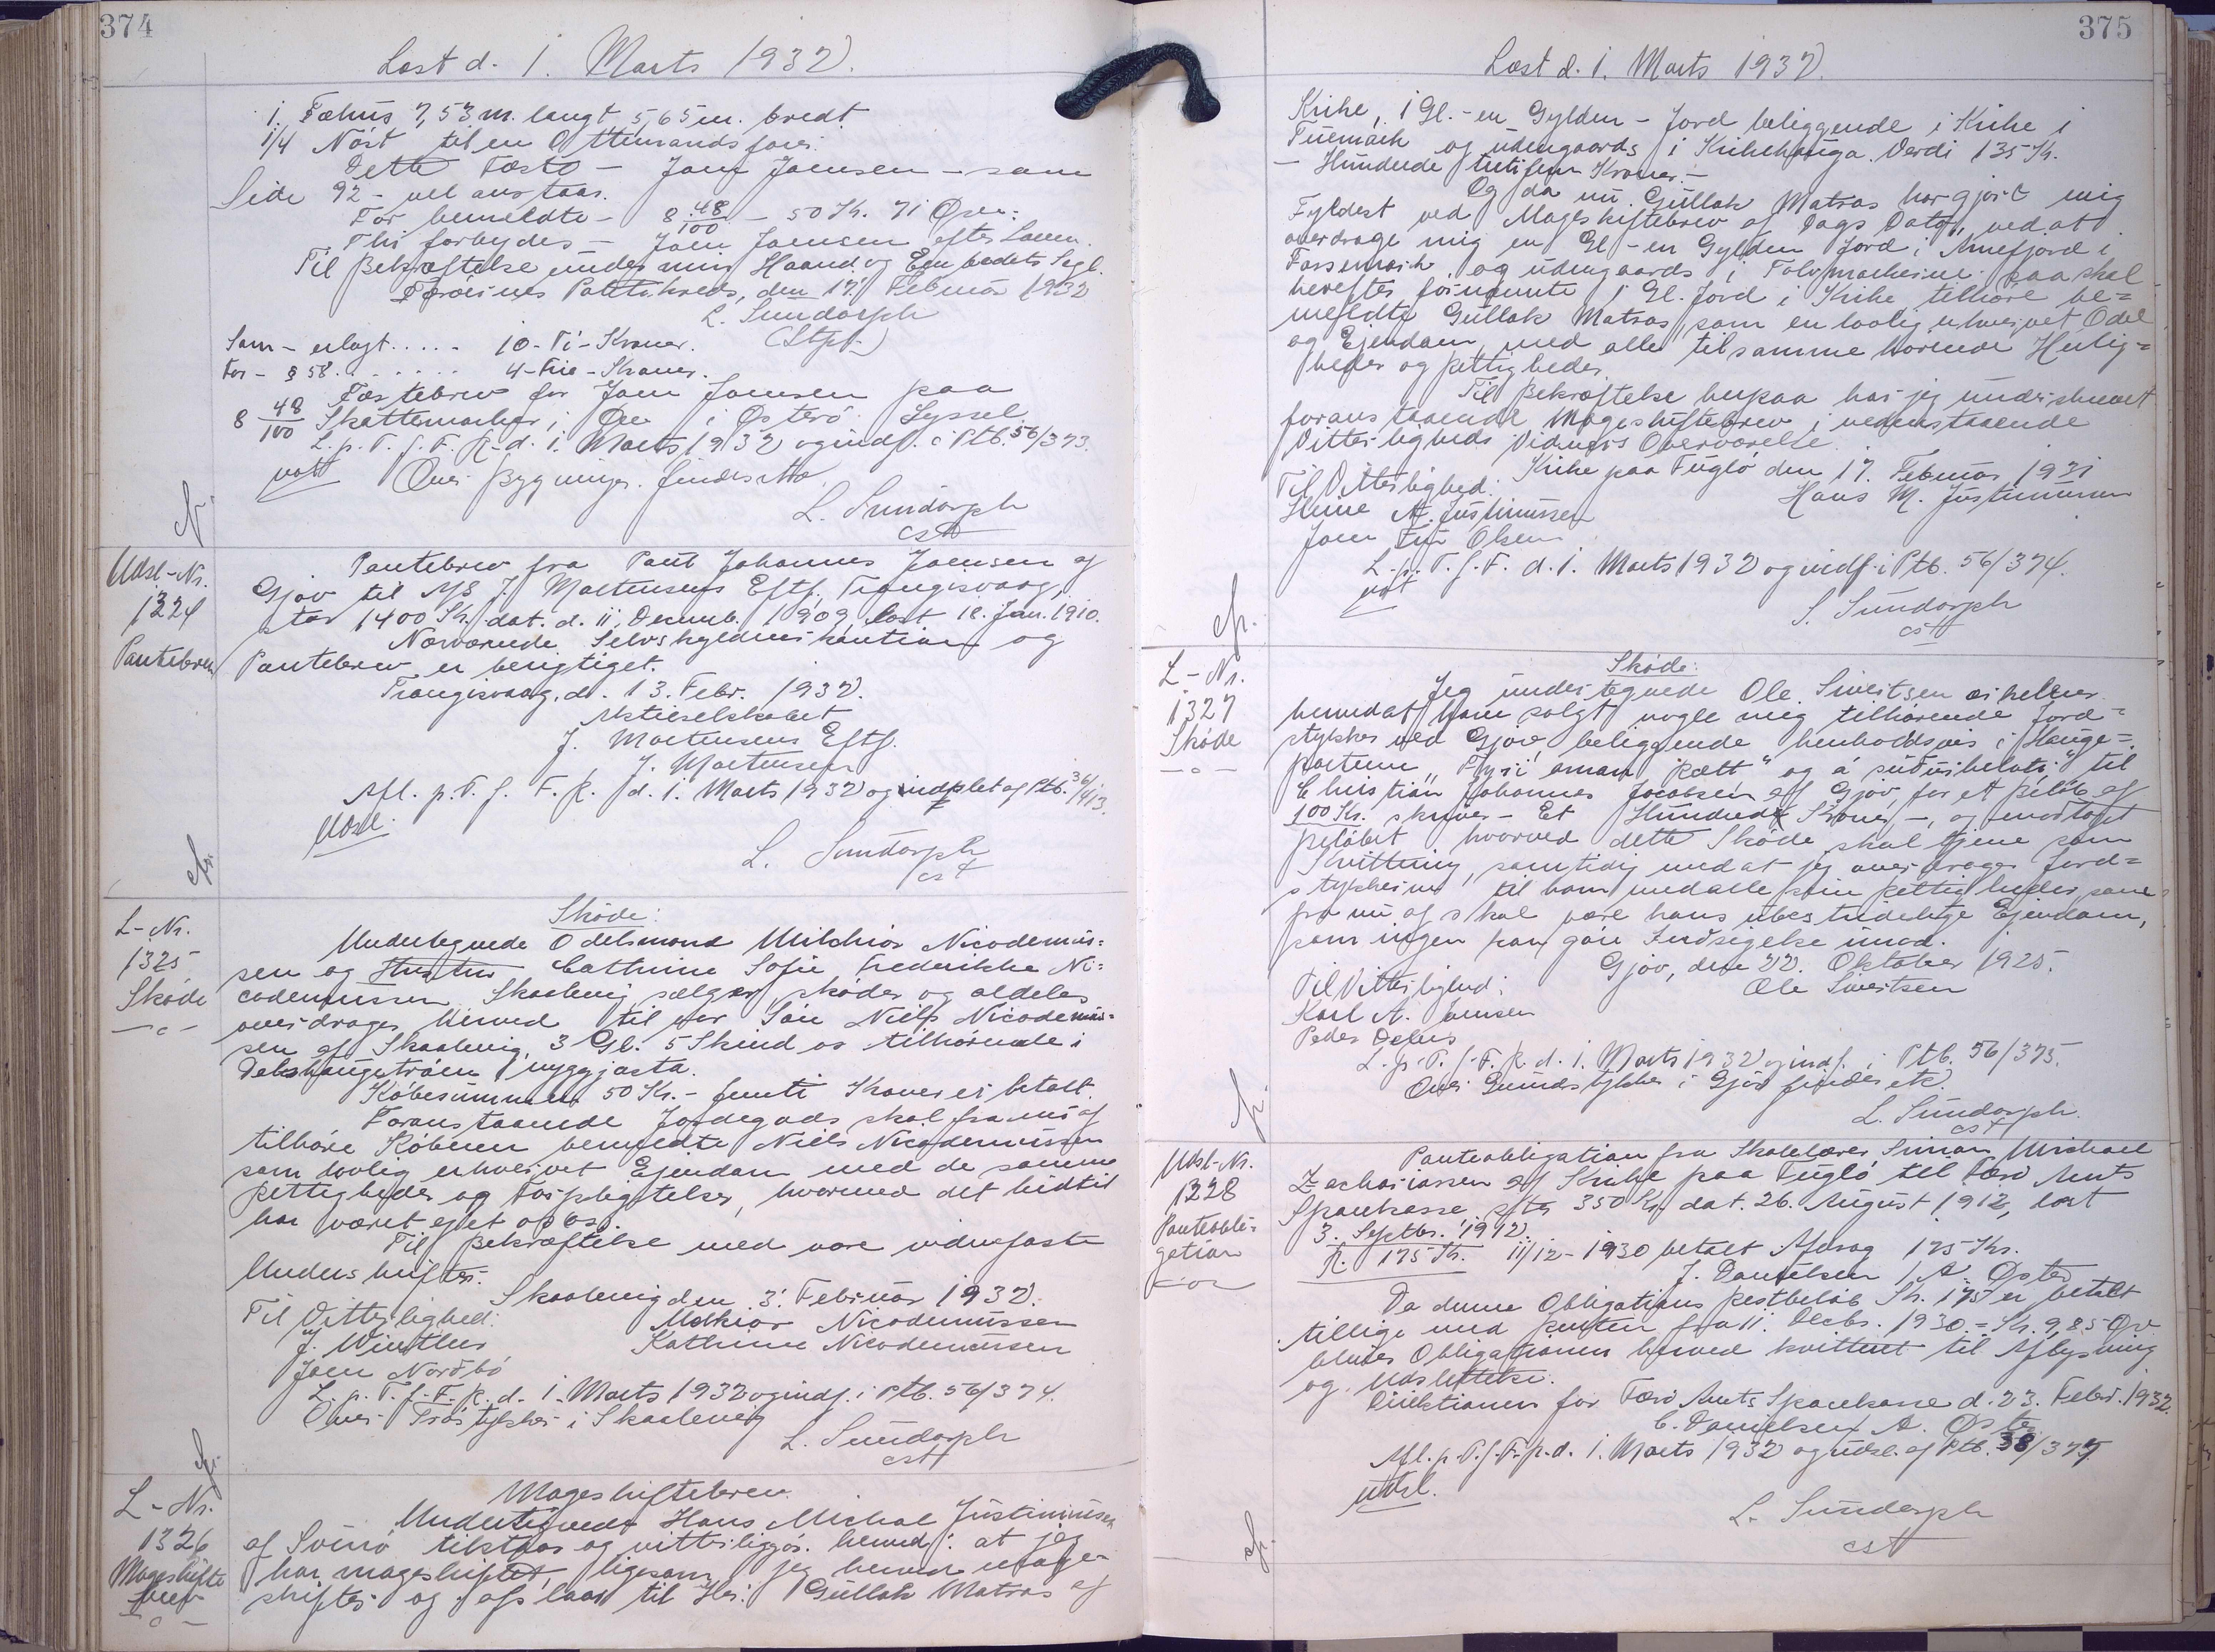 374
Læst d. 1. Marts 1932.
1. Fæhus 7,53 m. langt 5,65 m. bredt
1/4 Nöst til en Ottemandsfar.
Dette Fæste - Joen Joensen - som
Side 92 - vel anstaar.
For bemeldte - 8 48/100 - 50 Kr. 71 Øre:
Thi forbydes - Joen Joensen efter Loven.
Til Bekræftelse under min Haand og Embedets Segl.
Færöernes Politikreds, den 17. Februar 1932
L. Sundorph
(Stpl.)
Som - erlagt ..... 10 - Ti - Kroner.
For - § 58. ...... 4 - Fire - Kroner.
Fæstebrev for Joen Joensen paa
8 48/100 Skattemarker i Øre i Østerö Syssel
L. p. T. f. F. R. d. 1. Marts 1932 og indf. i Ptb. 56/373.
not Over Bygninger findes Att.
L. Sundorph
cst
Udsl-Nr.
1324
Pantebrev
Pantebrev fra Poul Johannes Joensen af
Gjov til A/S J. Mortensens Eftf., Trangisvaag,
stor 1400 Kr. dat. d. 11. Decemb. 1909, læst 18. Jan. 1910.
Nærværende Selvskyldnerkaution og
Pantebrev er berigtiget.
Trangisvaag, d. 13. Febr. 1932.
Aktieselskabet
J. Mortensens Eftf.
J. Mortensen
Afl. p. T. f. F. R. d. 1. Marts 1932 og udslet af Ptb. 36/413.
Udsl.
L. Sundorph
cst
L-Nr.
1325
Sköde
Sköde:
Undertegnede Odelsmand Milchior Nicodemus-
sen og Hustru Cathrine Sofie Frederikke Ni-
codemussen Skaalevig sælger, sköder og aldeles
overdrager herved til vor Sön Niels Nicodemus-
sen af Skaalevig, 3 Gl. 5 Skind os tilhörende i
nyggjasta.
Köbesummen 50 Kr. - femti Kroner er betalt.
Foranstaaende Jordegods skal fra nu af
tilhöre Köberen bemeldte Niels Nicodemussen
som lovlig erhvervet Ejendom med de samme
Rettigheder og Forpligtelser, hvormed det hidtil
har været ejet af os.
Til Bekræftelse med vore vidnefaste
Underskrifter.
Skaalevig den 3. Februar 1932.
Til Vitterlighed: Melkior Nicodemussen
J. Winther Kathrine Nicodemussen
Joen Nordbö
L. p. T. f. F. R. d. 1. Marts 1932 og indf. i Ptb. 56/374.
Over Tröstykker i Skaalevig
L. Sundorph
cst
L-Nr.
1326
Mageskifte
brev
Mageskiftebrev.
Undertegnede Hans Michal Justinussen
af Svinö tilstaar og vitterliggör herved: at jeg
har mageskiftet, ligesom jeg herved mage-
skifter og afstaar til Hr. Gullak Matras af
375
Læst d. 1. Marts 1932.
Kirke, 1 Gl. - en Gylden - Jord beliggende i Kirke i
og udengaards i Kirkehauga. Verdi 135 Kr.
- Hundrede trétifem Kroner. -
Og da nu Gullak Matras har gjort mig
Fyldest ved Mageskiftebrev af Dags Dato, ved at
overdrage mig en Gl - en Gylden Jord i Arnefjord i
og udengaards i saa skal
herefter fornævnte 1 Gl. Jord i Kirke tilhöre be-
meldte Gullak Matras, som en lovlig erhvervet Odel
og Ejendom, med alle tilsamme hörende Herlig-
heder og Rettigheder.
Til Bekræftelse herpaa har jeg underskrevet
foranstaaende Mageskiftebrev i nedenstaaende
Vitterligheds Vidners Overværelse.
Kirke paa Fuglö den 17. Februar 1931
Til Vitterlighed: Hans M. Justinussen
A. Justinussen
Joen Olsen
L. p. T. f. F. d. 1. Marts 1932 og indf. i Ptb. 56/374.
not
L. Sundorph
cst
L-Nr.
1327
Sköde
Sköde:
Jeg undertegnede Ole Sivertsen erkender
hermed at have solgt nogle mig tilhörende Jord-
stykker ved Gjov, beliggende henholdsvis i Hauge-
parten og til
Christian Johannes Jacobsen af Gjov, for et Belöb af
100 Kr. skriver - Et Hundrede Kroner -, og modtaget
Belöbet hvorved dette Sköde skal tjene som
Kvittering, samtidig med at jeg overdrager Jord-
stykkerne til ham med alle sin Rettigheder, som
fra nu af skal være hans ubestridelige Ejendom,
som ingen kan göre Indsigelse imod.
Gjov, den 22. Oktober 1925.
Til Vitterlighed: Ole Sivertsen
Karl A. Joensen
Peder
L. p. T. f. F. R. d. 1. Marts 1932 og indf. i Ptb. 56/375.
Over Grundstykker i Gjov findes etc.
L. Sundorph.
cst
Udsl-Nr.
1328
Panteobli-
gation
Panteobligation fra Skolelærer Simon Michael
Zachariassen af Kirke paa Fuglö til Færö Amts
Sparekasse stor 350 Kr. dat. 26. August 1912, læst
3. Septbr. 1912.
R. 175 Kr. 11/12 - 1930 betalt Afdrag 175 Kr.
J. Danielsen / A. Øster
Da denne Obligations Restbelöb Kr. 175 er betalt
tillige med Renten fra 11. Decbr. 1930 = Kr. 9,85 Ør
bliver Obligationen herved kvitteret til Aflysning
og Udslettelse.
Direktionen for Færö Amts Sparekasse d. 23. Febr. 1932.
C. Danielsen A. Øster
Afl. p. T. f. F. R. d. 1. Marts 1932 og udsl. af Ptb. 38/377.
Udsl.
L. Sundorph
cst